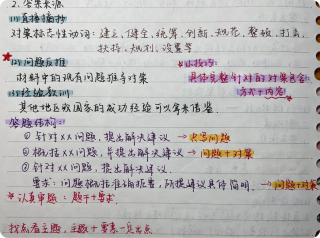 2. 答案来源
(1)直接摘抄
对策标志性动词：建立,健全,统筹,创新,规范,整改,打击,
扶持,规划,设置等
(2)问题反推 小技巧：
材料中的现有问题推导对策 具体完整针对的对策包含：
方式+内容
(3)经验教训
其他地区或国家的成功经验可以拿来借鉴.
答题结构：
① 针对××问题,提出解决建议 →
② 概括××问题,并提出解决建议. → 问题+对策
③ 针对××问题,提出解决建议.
要求：问题概括准确,所提建议具体简明. → 问题+对策
认真审题：题干+要求.
找总看主题,主题+要素一览出点